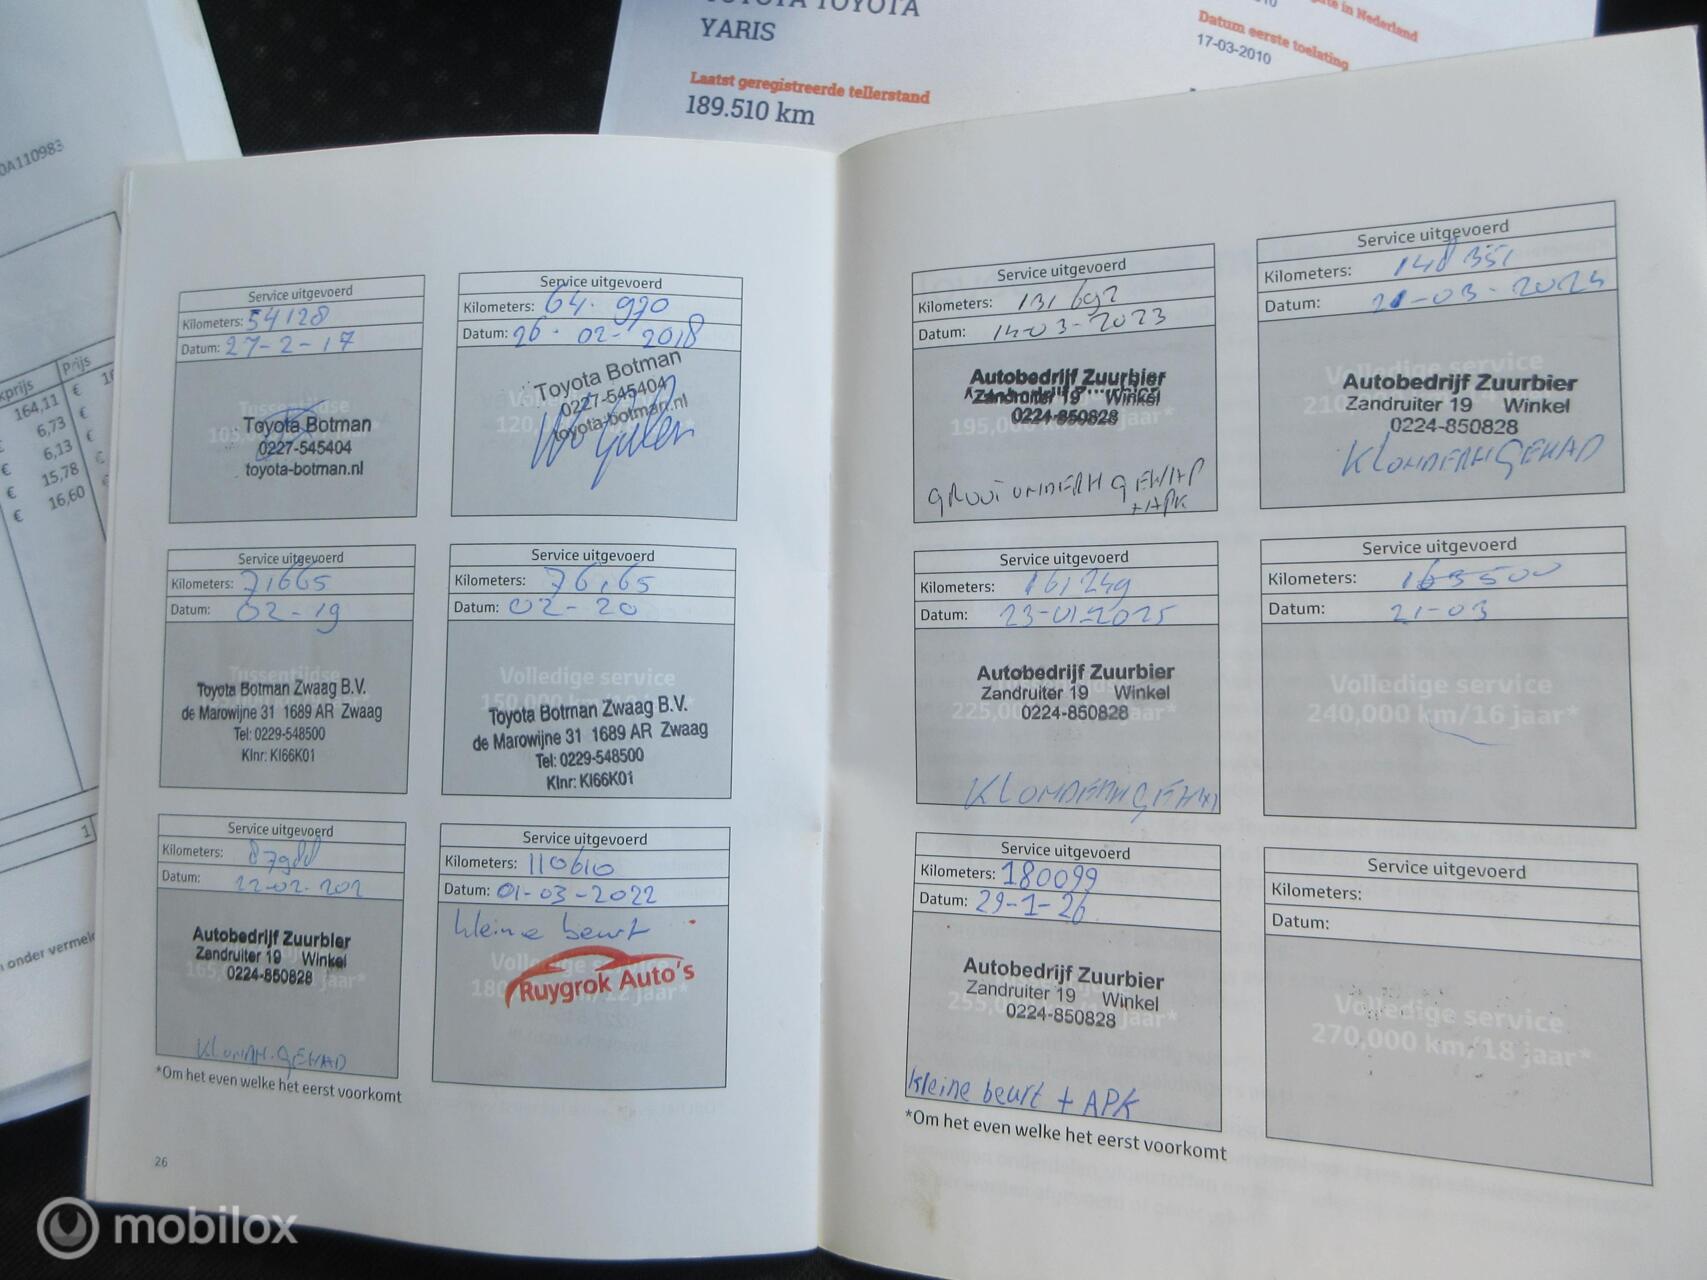 YARIS
Laatst geregistreerde tellerstand
189.510 km
in Nederland
Datum eerste toelating
17-03-2010
0A110983
Prijs
164,11 €
6,73
€ 6,13
€ 15,78
€ 16,60
1
onder vermeld
Service uitgevoerd
Kilometers: 54128
Datum: 27-2-17
Tussentijdse
Toyota Botman
0227-545404
toyota-botman.nl
Service uitgevoerd
Kilometers: 64.970
Datum: 26-02-2018
Toyota Botman
0227-545404
toyota-botman.nl
Service uitgevoerd
Kilometers: 71665
Datum: 02-19
Tussentijdse
Toyota Botman Zwaag B.V.
de Marowijne 31 1689 AR Zwaag
Tel: 0229-548500
Klnr: KI66K01
Service uitgevoerd
Kilometers: 76165
Datum: 02-20
Volledige service
150,000 km/10 jaar*
Toyota Botman Zwaag B.V.
de Marowijne 31 1689 AR Zwaag
Tel: 0229-548500
Klnr: KI66K01
Service uitgevoerd
Kilometers: 87988
Datum: 22-02-202
Autobedrijf Zuurbier
Zandruiter 19 Winkel
0224-850828
KL ONDH. GEHAD
Service uitgevoerd
Kilometers: 110610
Datum: 01-03-2022
kleine beurt
Ruygrok Auto's
*Om het even welke het eerst voorkomt
26
Service uitgevoerd
Kilometers: 131692
Datum: 14-03-2023
Autobedrijf Zuurbier
Zandruiter 19 Winkel
0224-850828
195,000
GROOT ONDERH GEHAD
+APK
Service uitgevoerd
Kilometers: 148351
Datum: 21-03-2024
Volledige service
Autobedrijf Zuurbier
Zandruiter 19 Winkel
0224-850828
KL ONDERH GEHAD
Service uitgevoerd
Kilometers: 161249
Datum: 23-01-2025
Autobedrijf Zuurbier
Zandruiter 19 Winkel
0224-850828
KL ONDERH GEHAD
Service uitgevoerd
Kilometers: 163500
Datum: 21-03
Volledige service
240,000 km/16 jaar*
Service uitgevoerd
Kilometers: 180099
Datum: 29-1-26
Autobedrijf Zuurbier
Zandruiter 19 Winkel
0224-850828
kleine beurt + APK
Service uitgevoerd
Kilometers:
Datum:
Volledige service
270,000 km/18 jaar*
*Om het even welke het eerst voorkomt
mobilox